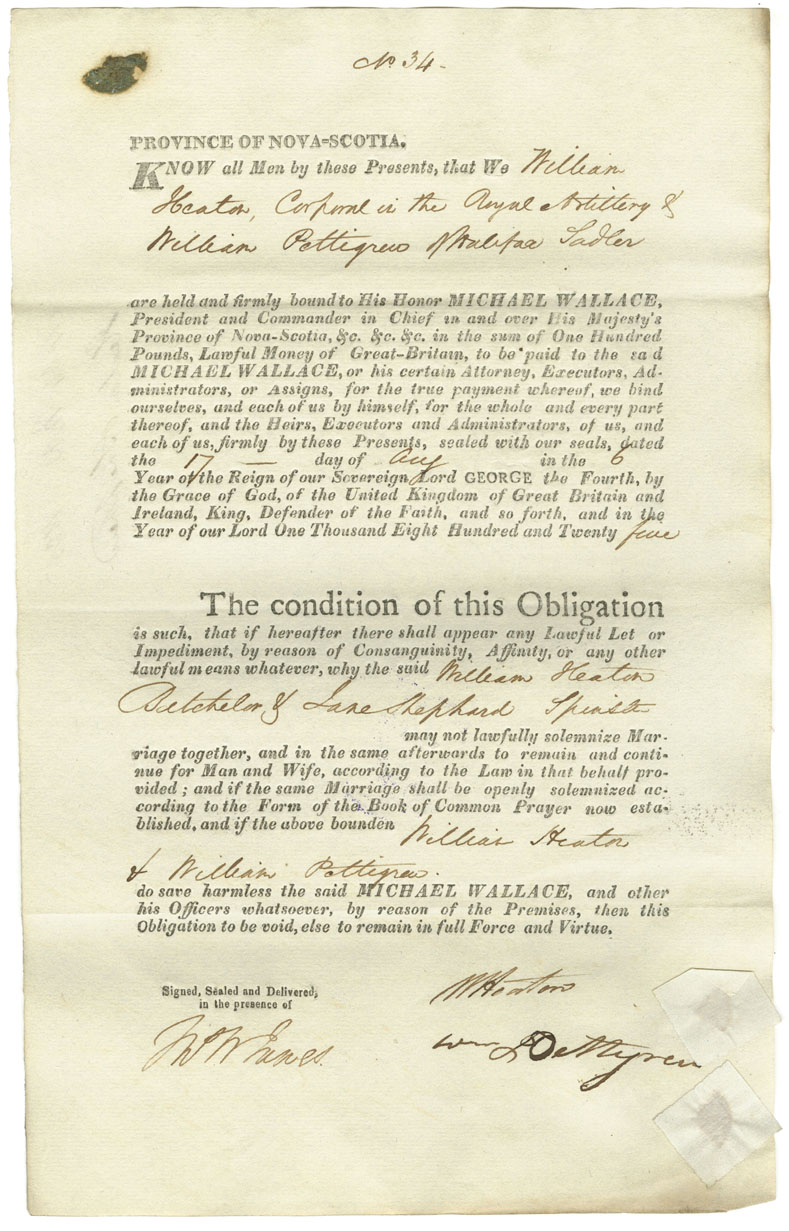 No 34-
PROVINCE OF NOVA=SCOTIA.
KNOW all Men by these Presents, that We William
Heaton, Corporal in the Royal Artillery &
William Pettigrew of Halifax Sadler
are held and firmly bound to His Honor MICHAEL WALLACE,
President and Commander in Chief in and over His Majesty's
Province of Nova-Scotia, &c. &c. &c. in the sum of One Hundred
Pounds, Lawful Money of Great-Britain, to be paid to the said
MICHAEL WALLACE, or his certain Attorney, Executors, Ad-
ministrators, or Assigns, for the true payment whereof, we bind
ourselves, and each of us by himself, for the whole and every part
thereof, and the Heirs, Executors and Administrators, of us, and
each of us, firmly by these Presents, sealed with our seals, dated
the 17 — day of Aug in the 6
Year of the Reign of our Sovereign Lord GEORGE the Fourth, by
the Grace of God, of the United Kingdom of Great Britain and
Ireland, King, Defender of the Faith, and so forth, and in the
Year of our Lord One Thousand Eight Hundred and Twenty five
The condition of this Obligation
is such, that if hereafter there shall appear any Lawful Let or
Impediment, by reason of Consanguinity, Affinity, or any other
lawful means whatever, why the said William Heaton
Batchelor, & Jane Shephard Spinster
may not lawfully solemnize Mar-
riage together, and in the same afterwards to remain and conti-
nue for Man and Wife, according to the Law in that behalf pro-
vided; and if the same Marriage shall be openly solemnized ac-
cording to the Form of the Book of Common Prayer now esta-
blished, and if the above bounden William Heaton
& William Pettigrew.
do save harmless the said MICHAEL WALLACE, and other
his Officers whatsoever, by reason of the Premises, then this
Obligation to be void, else to remain in full Force and Virtue.
Signed, Sealed and Delivered,
in the presence of
W Heaton
Wm Pettigrew